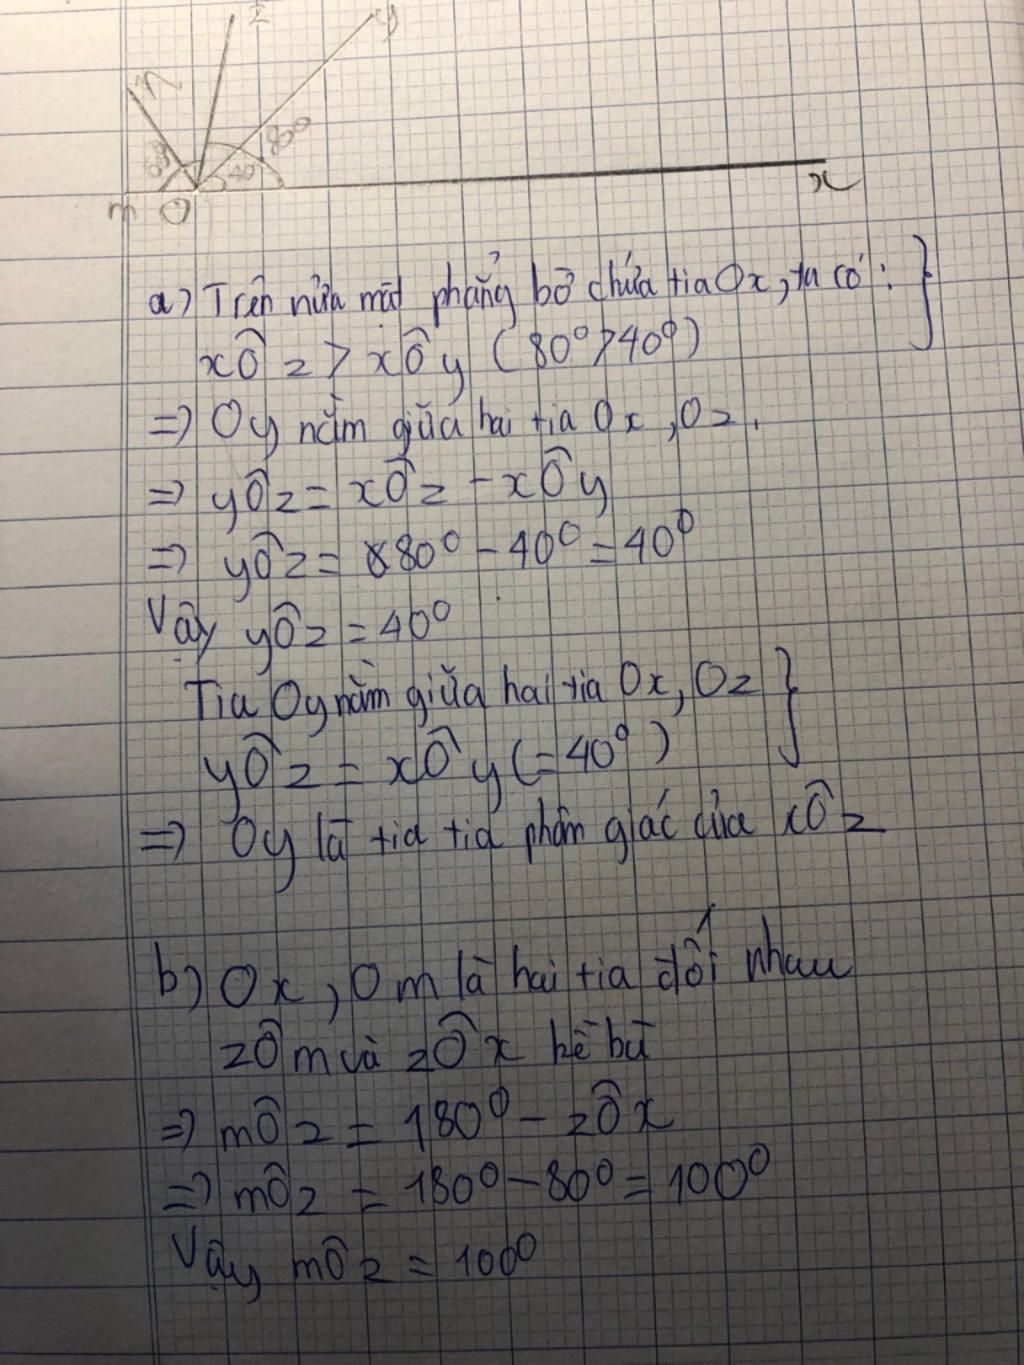 z
y
n
80°
40°
x
m O
a) Trên nửa mặt phẳng bờ chứa tia Ox, ta có: }
xÔz > xÔy (80° > 40°)
=> Oy nằm giữa hai tia Ox, Oz.
=> yÔz = xÔz - xÔy
=> yÔz = 80° - 40° = 40°
Vậy yÔz = 40°
Tia Oy nằm giữa hai tia Ox, Oz }
yÔz = xÔy (= 40°)
=> Oy là tia tia phân giác của xÔz
b) Ox, Om là hai tia đối nhau
zÔm và zÔx kề bù
=> mÔz = 180° - zÔx
=> mÔz = 180° - 80° = 100°
Vậy mÔz = 100°